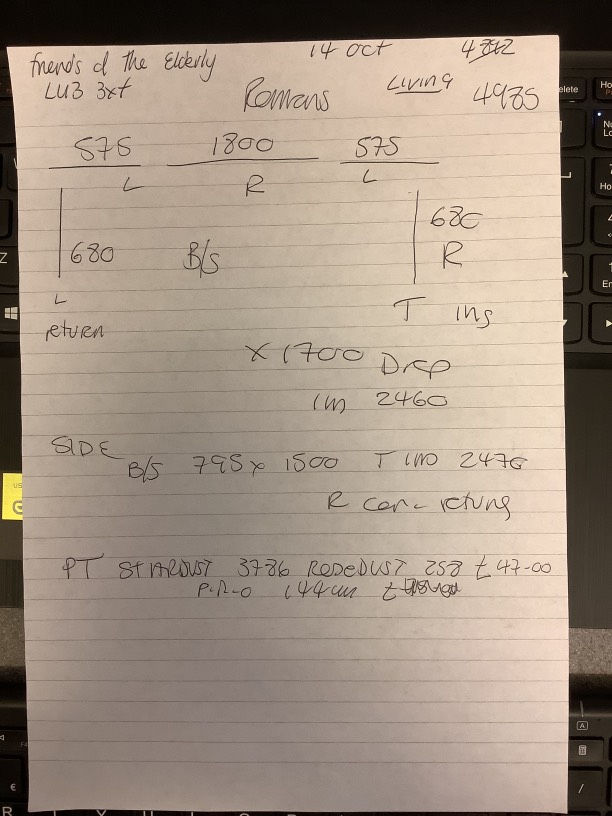 friends of the Elderly 14 Oct
LU3 3xt Romans Living 4985
575 1800 575
L R L
680 B/S 680
R
L
return T ins
x 1700 Drop
IN 2460
SIDE
B/S 795 x 1500 T IND 2470
R return
PT STARDUST 3786 ROSEDUST 258 £ 47-00
P.R-O 144cm £